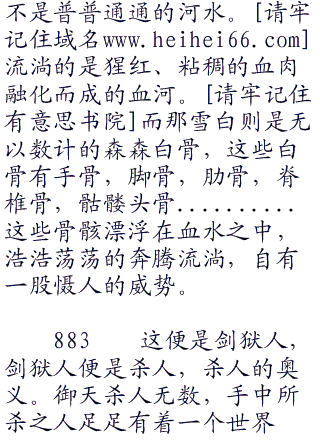 不是普普通通的河水。[请牢
记住域名www.heihei66.com]
流淌的是猩红、粘稠的血肉
融化而成的血河。[请牢记住
有意思书院]而那雪白则是无
以数计的森森白骨，这些白
骨有手骨，脚骨，肋骨，脊
椎骨，骷髅头骨..........
这些骨骸漂浮在血水之中，
浩浩荡荡的奔腾流淌，自有
一股慑人的威势。
883 这便是剑狱人，
剑狱人便是杀人，杀人的奥
义。御天杀人无数，手中所
杀之人足足有着一个世界